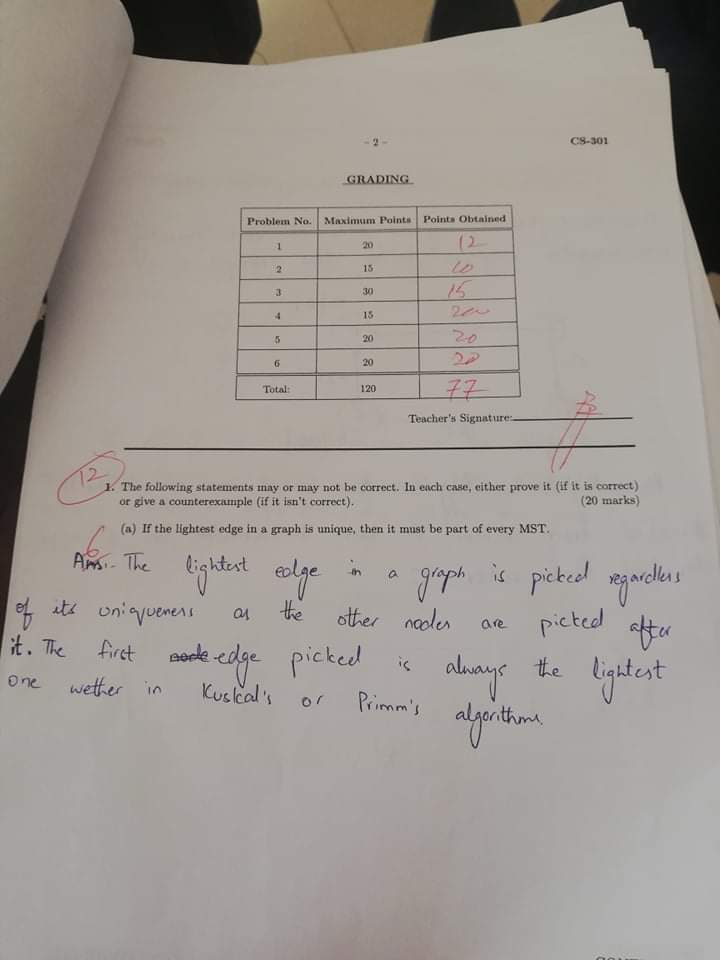 - 2 -
CS-301
GRADING
Problem No. Maximum Points Points Obtained
1 20 12
2 15 10
3 30 15
4 15
5 20 20
6 20 20
Total: 120 77
Teacher's Signature:
12
1. The following statements may or may not be correct. In each case, either prove it (if it is correct)
or give a counterexample (if it isn't correct). (20 marks)
(a) If the lightest edge in a graph is unique, then it must be part of every MST.
6
Ans:- The lightest edge in a graph is picked regardless
of its uniqueness as the other nodes are picked after
it. The first node edge picked is always the lightest
one wether in Kuskal's or Primm's algorithms.